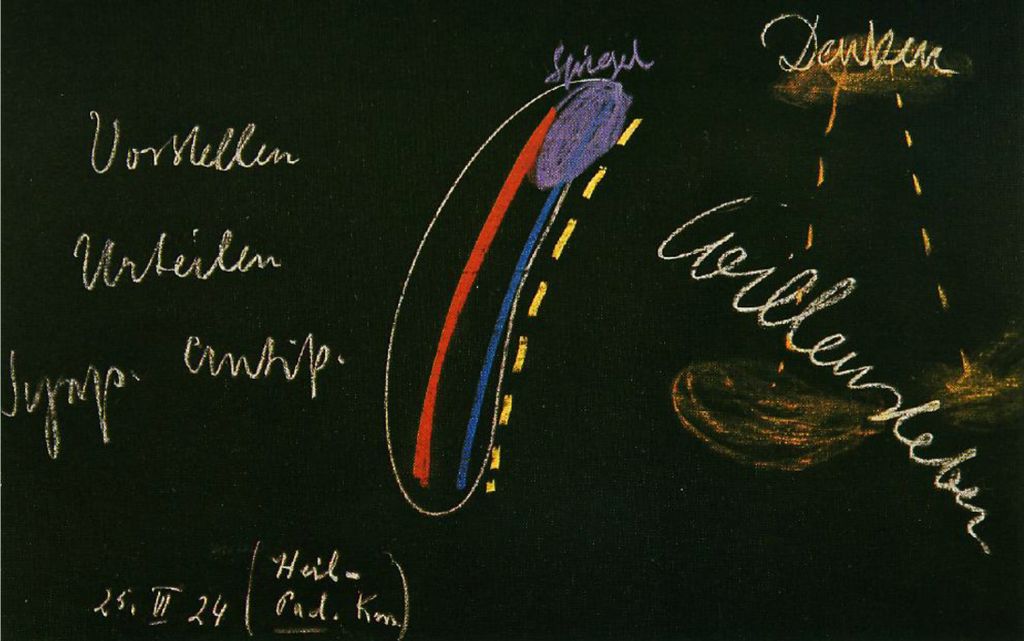 Vorstellen
Urteilen
Symp. Antip.
Spiegel
Denken
Willensleben
25. VI 24 (Heil-
Päd. Kurs)